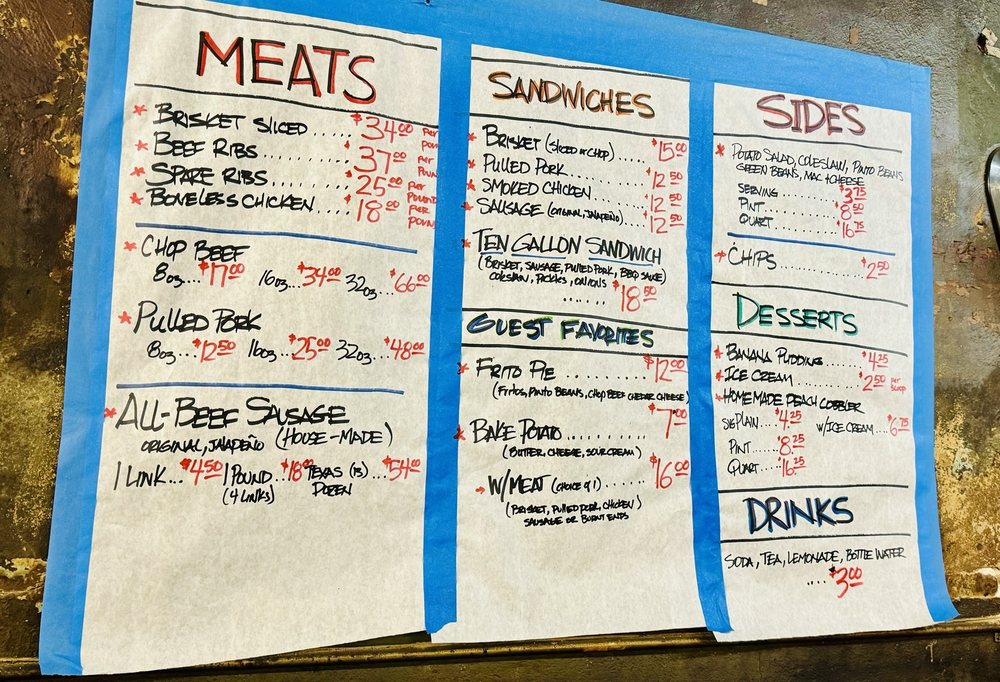 MEATS
* BRISKET SLICED ..... $34.00 PER POUND
* BEEF RIBS .......... $37.00 PER POUND
* SPARE RIBS ......... $25.00 PER POUND
* BONELESS CHICKEN .... $18.00 PER POUND
* CHOP BEEF
8oz.... $17.00 16oz... $34.00 32oz... $66.00
* PULLED PORK
8oz... $12.50 16oz... $25.00 32oz... $48.00
* ALL-BEEF SAUSAGE
ORIGINAL, JALAPEÑO (HOUSE-MADE)
1 LINK... $4.50 1 POUND.. $18.00 TEXAS (13) ... $54.00
(4 LINKS) DOZEN
SANDWICHES
* BRISKET (SLICED or CHOP) .... $15.00
* PULLED PORK ........ $12.50
* SMOKED CHICKEN ........ $12.50
* SAUSAGE (ORIGINAL, JALAPEÑO) ..... $12.50
* TEN GALLON SANDWICH
(BRISKET, SAUSAGE, PULLED PORK, BBQ SAUCE)
COLESLAW, PICKLES, ONIONS
...... $18.50
GUEST FAVORITES
* FRITO PIE ......... $12.00
(FRITOS, PINTO BEANS, CHOP BEEF CHEDAR CHEESE)
* BAKE POTATO .......... $7.00
(BUTTER, CHEESE, SOUR CREAM)
→ W/MEAT (CHOICE of 1) ...... $16.00
(BRISKET, PULLED PORK, CHICKEN)
SAUSAGE OR BURNT ENDS
SIDES
* POTATO SALAD, COLESLAW, PINTO BEANS
GREEN BEANS, MAC + CHEESE
SERVING ....... $3.75
PINT ........ $8.50
QUART ........ $16.75
→ CHIPS .......... $2.50
DESSERTS
* BANANA PUDDING ..... $4.25
* ICE CREAM ......... $2.50 PER SCOOP
* HOMEMADE PEACH COBBLER
PLAIN... $4.25 W/ICE CREAM .... $6.75
PINT.... $8.25
QUART.... $16.25
DRINKS
SODA, TEA, LEMONADE, BOTTLE WATER
.... $3.00